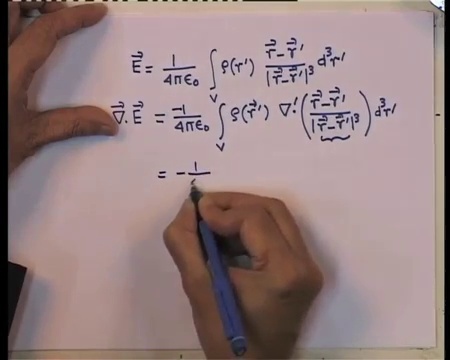 E⃗ = 1/4πε₀ ∫_V ρ(r') (r⃗ - r⃗')/|r⃗ - r⃗'|³ d³r'
∇⃗. E⃗ = -1/4πε₀ ∫_V ρ(r⃗') ∇'. ((r⃗ - r⃗')/|r⃗ - r⃗'|³) d³r'
= - 1/